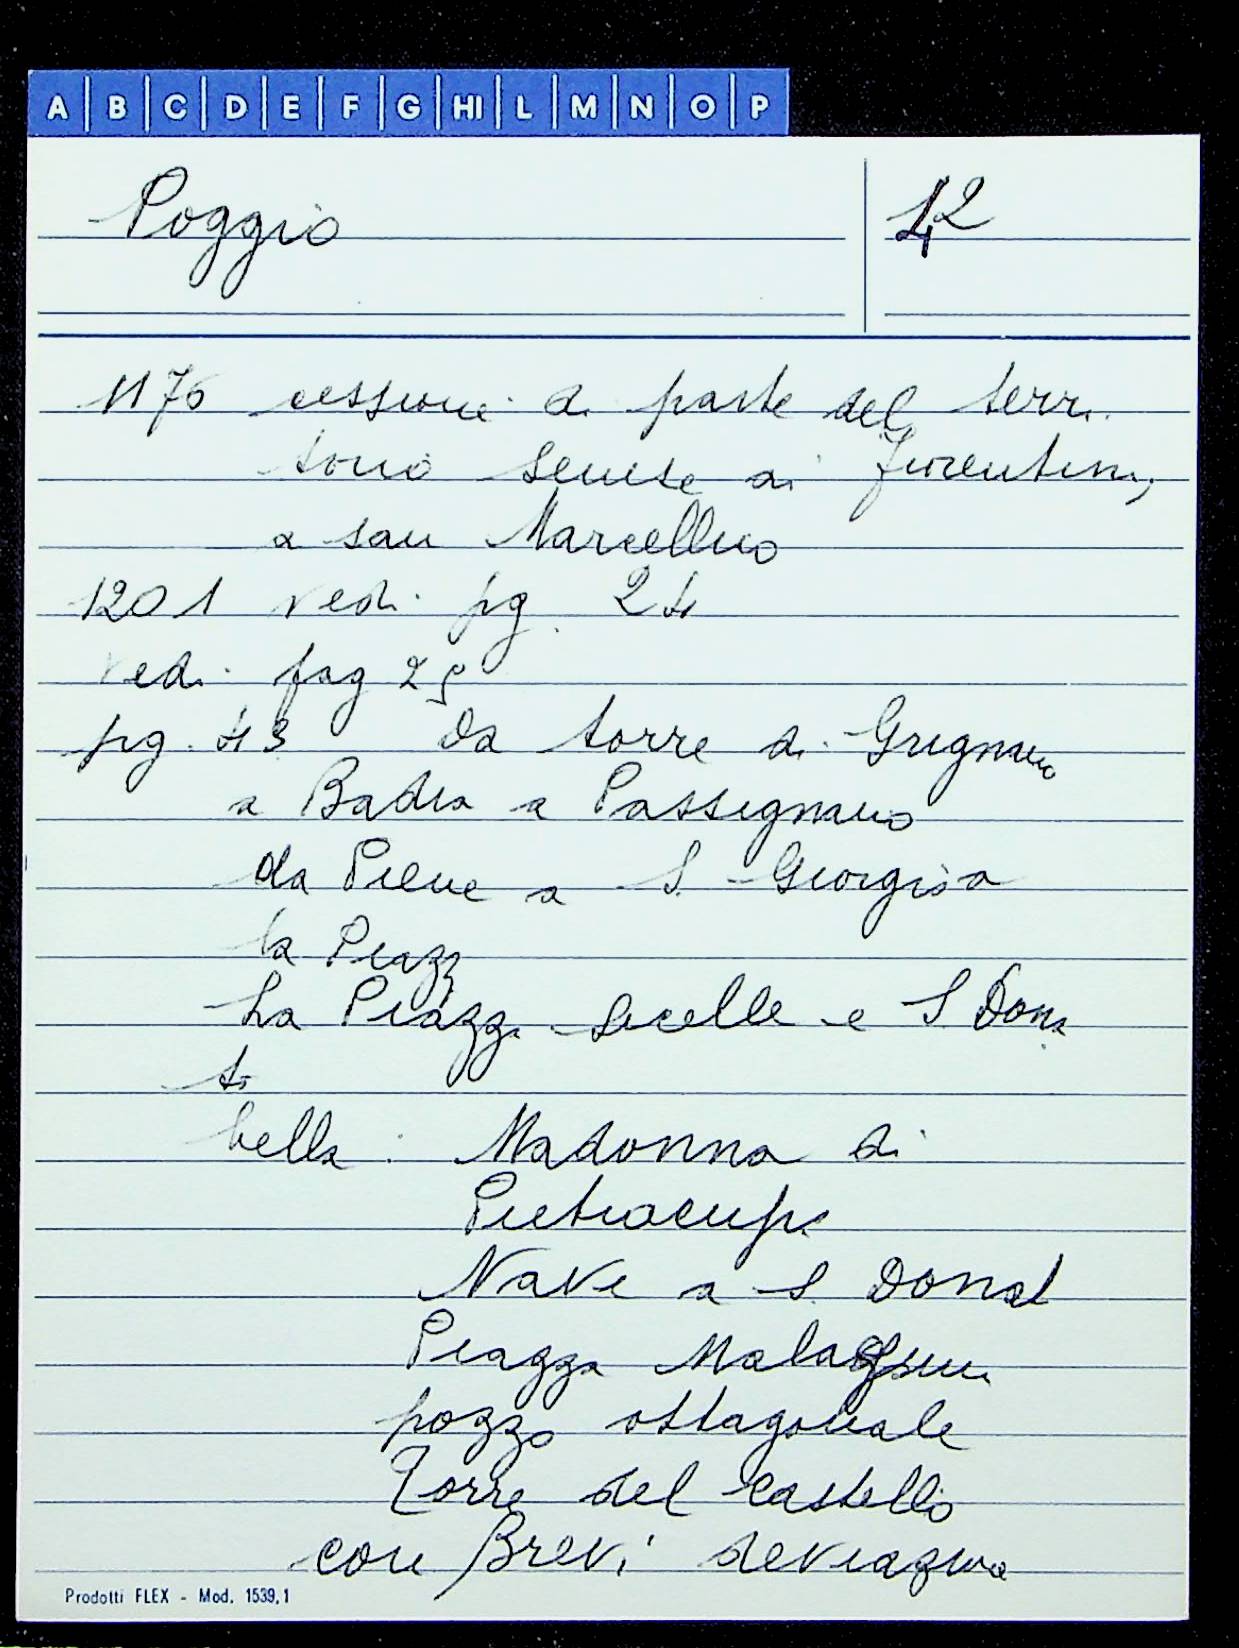 A B C D E F G HI L M N O P
Poggio 12
1176 cessione di parte del terri
torio senese ai fiorentini,
a san Marcellino
1201 vedi pg. 24
vedi pag 25
pg. 43 da torre di Grignano
a Badia a Passignano
da Pieve a S. Giorgio a
la Piazz
La Piazza Sicelle e S Dona
to
bella : Madonna di
Pietracupa
Nave a S. Donat
Piazza
pozzo ottagonale
Torre del Castello
con Brevi deviazione
Prodotti FLEX - Mod. 1539,1